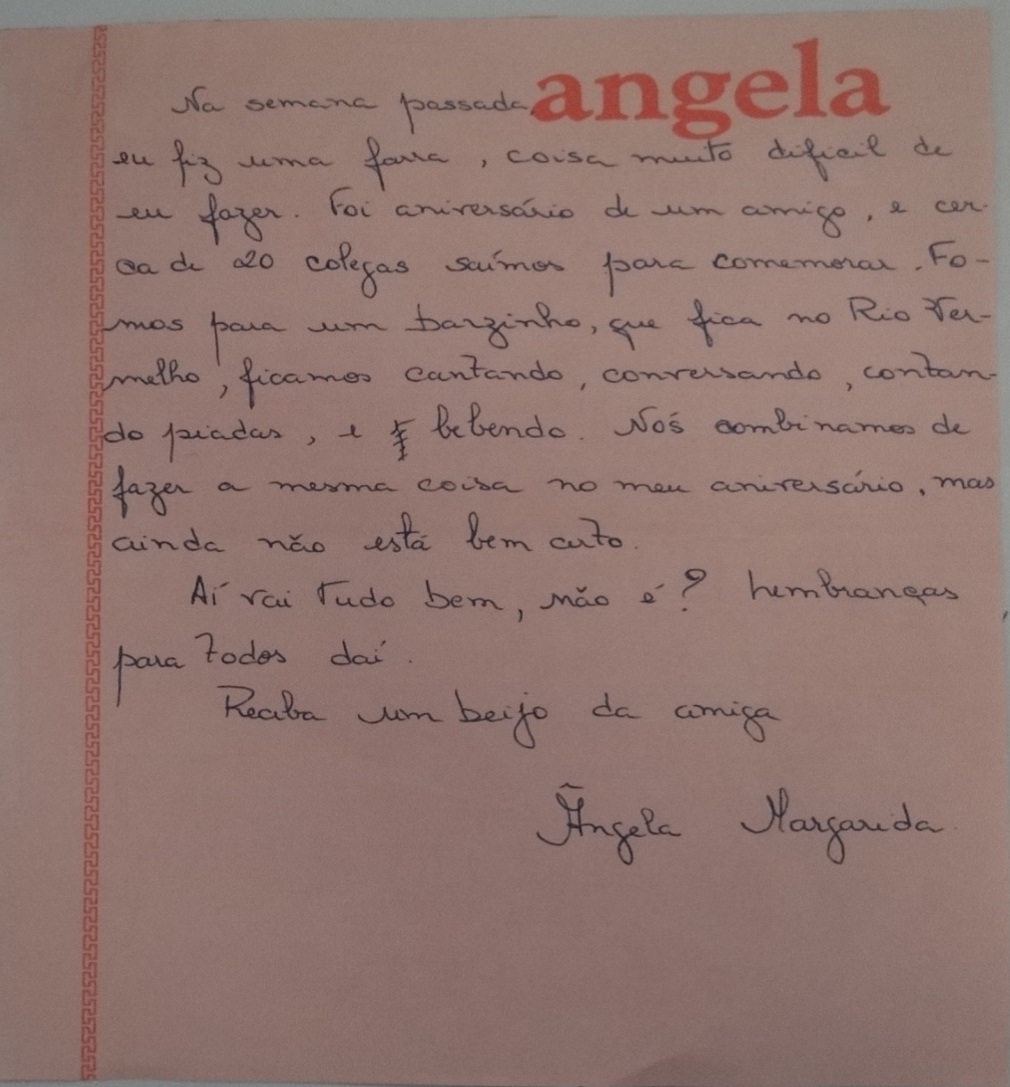 angela
Na semana passada
eu fiz uma farra, coisa muito dificil de
eu fazer. Foi aniversário de um amigo, e cer-
ca de 20 colegas saímos para comemorar. Fo-
mos para um barzinho, que fica no Rio Ver-
melho, ficamos cantando, conversando, contan-
do piadas, e bebendo. Nós combinamos de
fazer a mesma coisa no meu aniversário, mas
ainda não está bem certo.
Aí vai tudo bem, não é? Lembranças
para todos daí.
Receba um beijo da amiga
Ângela Margarida